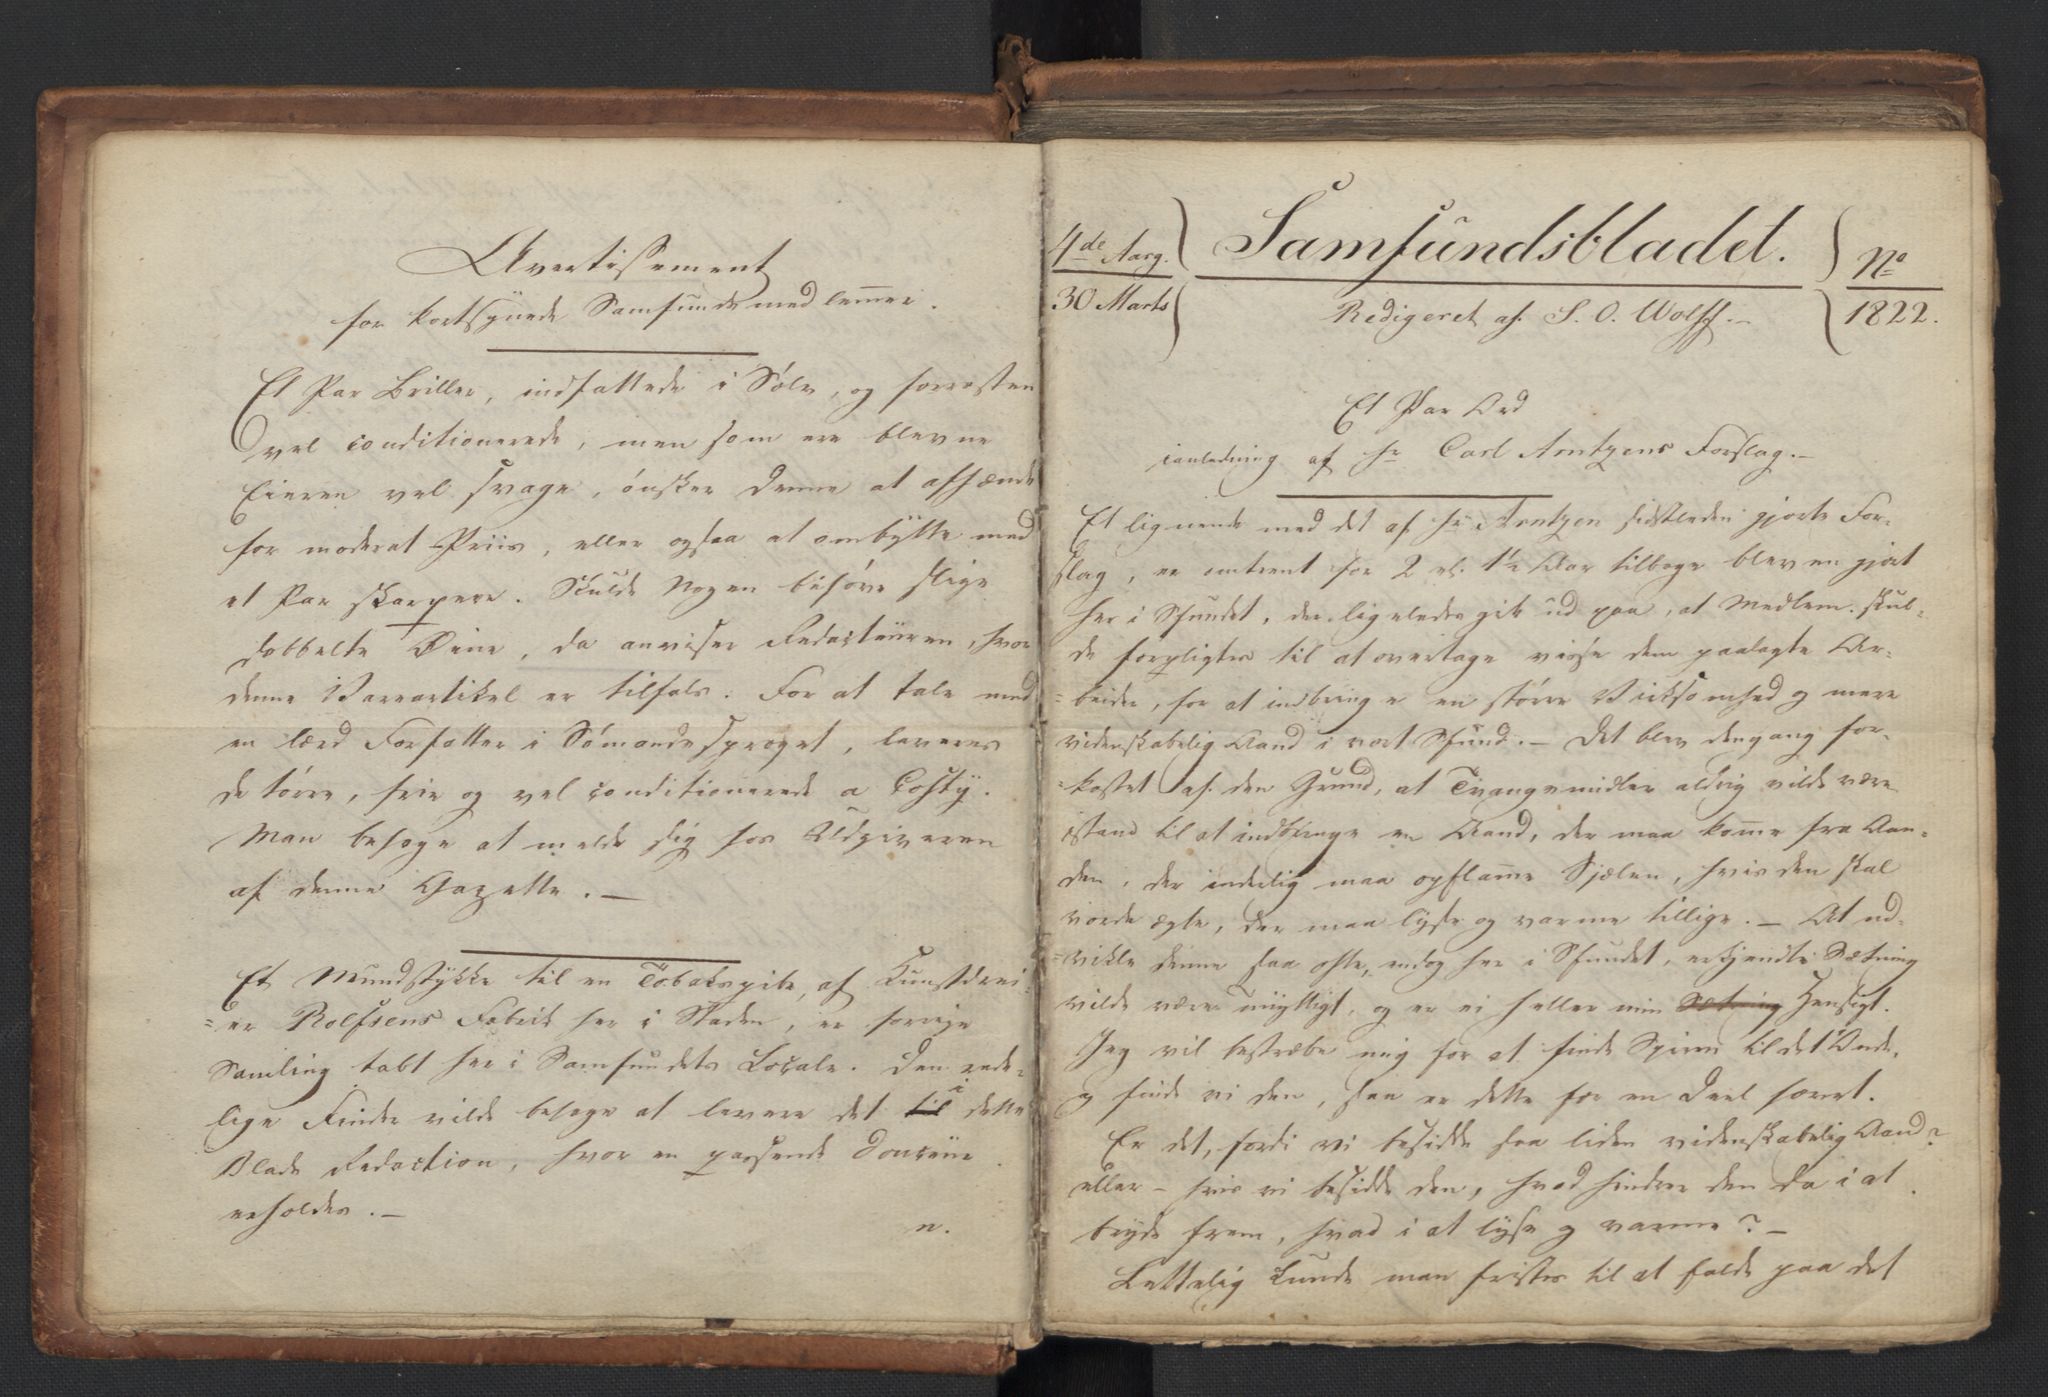 Avertissement
for kortsynede Samfundsmedlemer.
Et Par Briller, indfattede i Sølv, og forresten
vel conditionerede, men som ere blevne
Eieren vel svage, ønsker denne at afhænde
for moderat Priis, eller ogsaa at ombytte med
et Par skarpere. Skulde Nogen behøve slige
dobbelte Øine, da anviser Redacteuren, hvor
denne Vareartikel er tilfals. For at tale med
en lærd Forfatter i Sømandssproget, leveres
de tørre, frie og vel conditionerede a Costy.
Man behage at melde sig hos Udgiveren
af denne Gazette. —
Et Mundstykke til en Tobakspibe, af Kunstdrei-
=er Rolfsens Fabrik her i Staden, er forrige
Samling tabt her i Samfundets Locale. Den rede-
lige Finder vilde behage at levere det til i dette
Blads Redaction, hvor en passende Douceur
erholdes. —
n.
4de Aarg. Samfundsbladet. No
30 Marts Redigeret af S. O. Wolff. — 1822.
Et Par Ord
ianledning af Hr Carl Arntzens Forslag. —
Et lignende med det af Hr Arntzen sidstleden gjorte For-
slag, er omtrent for 2 el. 1½ Aar tilbage bleven gjort
her i Sfundet, der ligeledes gik ud paa, at Medlem. skul-
de forpligtes til at overtage visse dem paalagte Ar-
=beider, for at indbringe en større Virksomhed og mere
videnskabelig Aand i vort Sfund. — Det blev dengang for-
=kastet af den Grund, at Tvangsmidler aldrig vilde være
istand til at indbringe en Aand, der maa komme fra Aan-
den, der inderlig maa opflamme Sjælen, hvis den skal
vorde ægte, der maa lyse og varme tillige. — At ud-
=vikle denne saa ofte, endog her i Sfundet, erkjendte Sætning
vilde være unyttigt, og er ei heller min Sætning Hensigt.
Jeg vil bestræbe mig for at finde Spiren til det Onde,
og finde vi den, saa er dette for en Deel hævet.
Er det, fordi vi besidde saa liden videnskabelig Aand?
eller – hvis vi besidde den, hvad hindrer den da i at
bryde frem, hvad i at lyse og varme? —
Lettelig kunde man fristes til at falde paa det